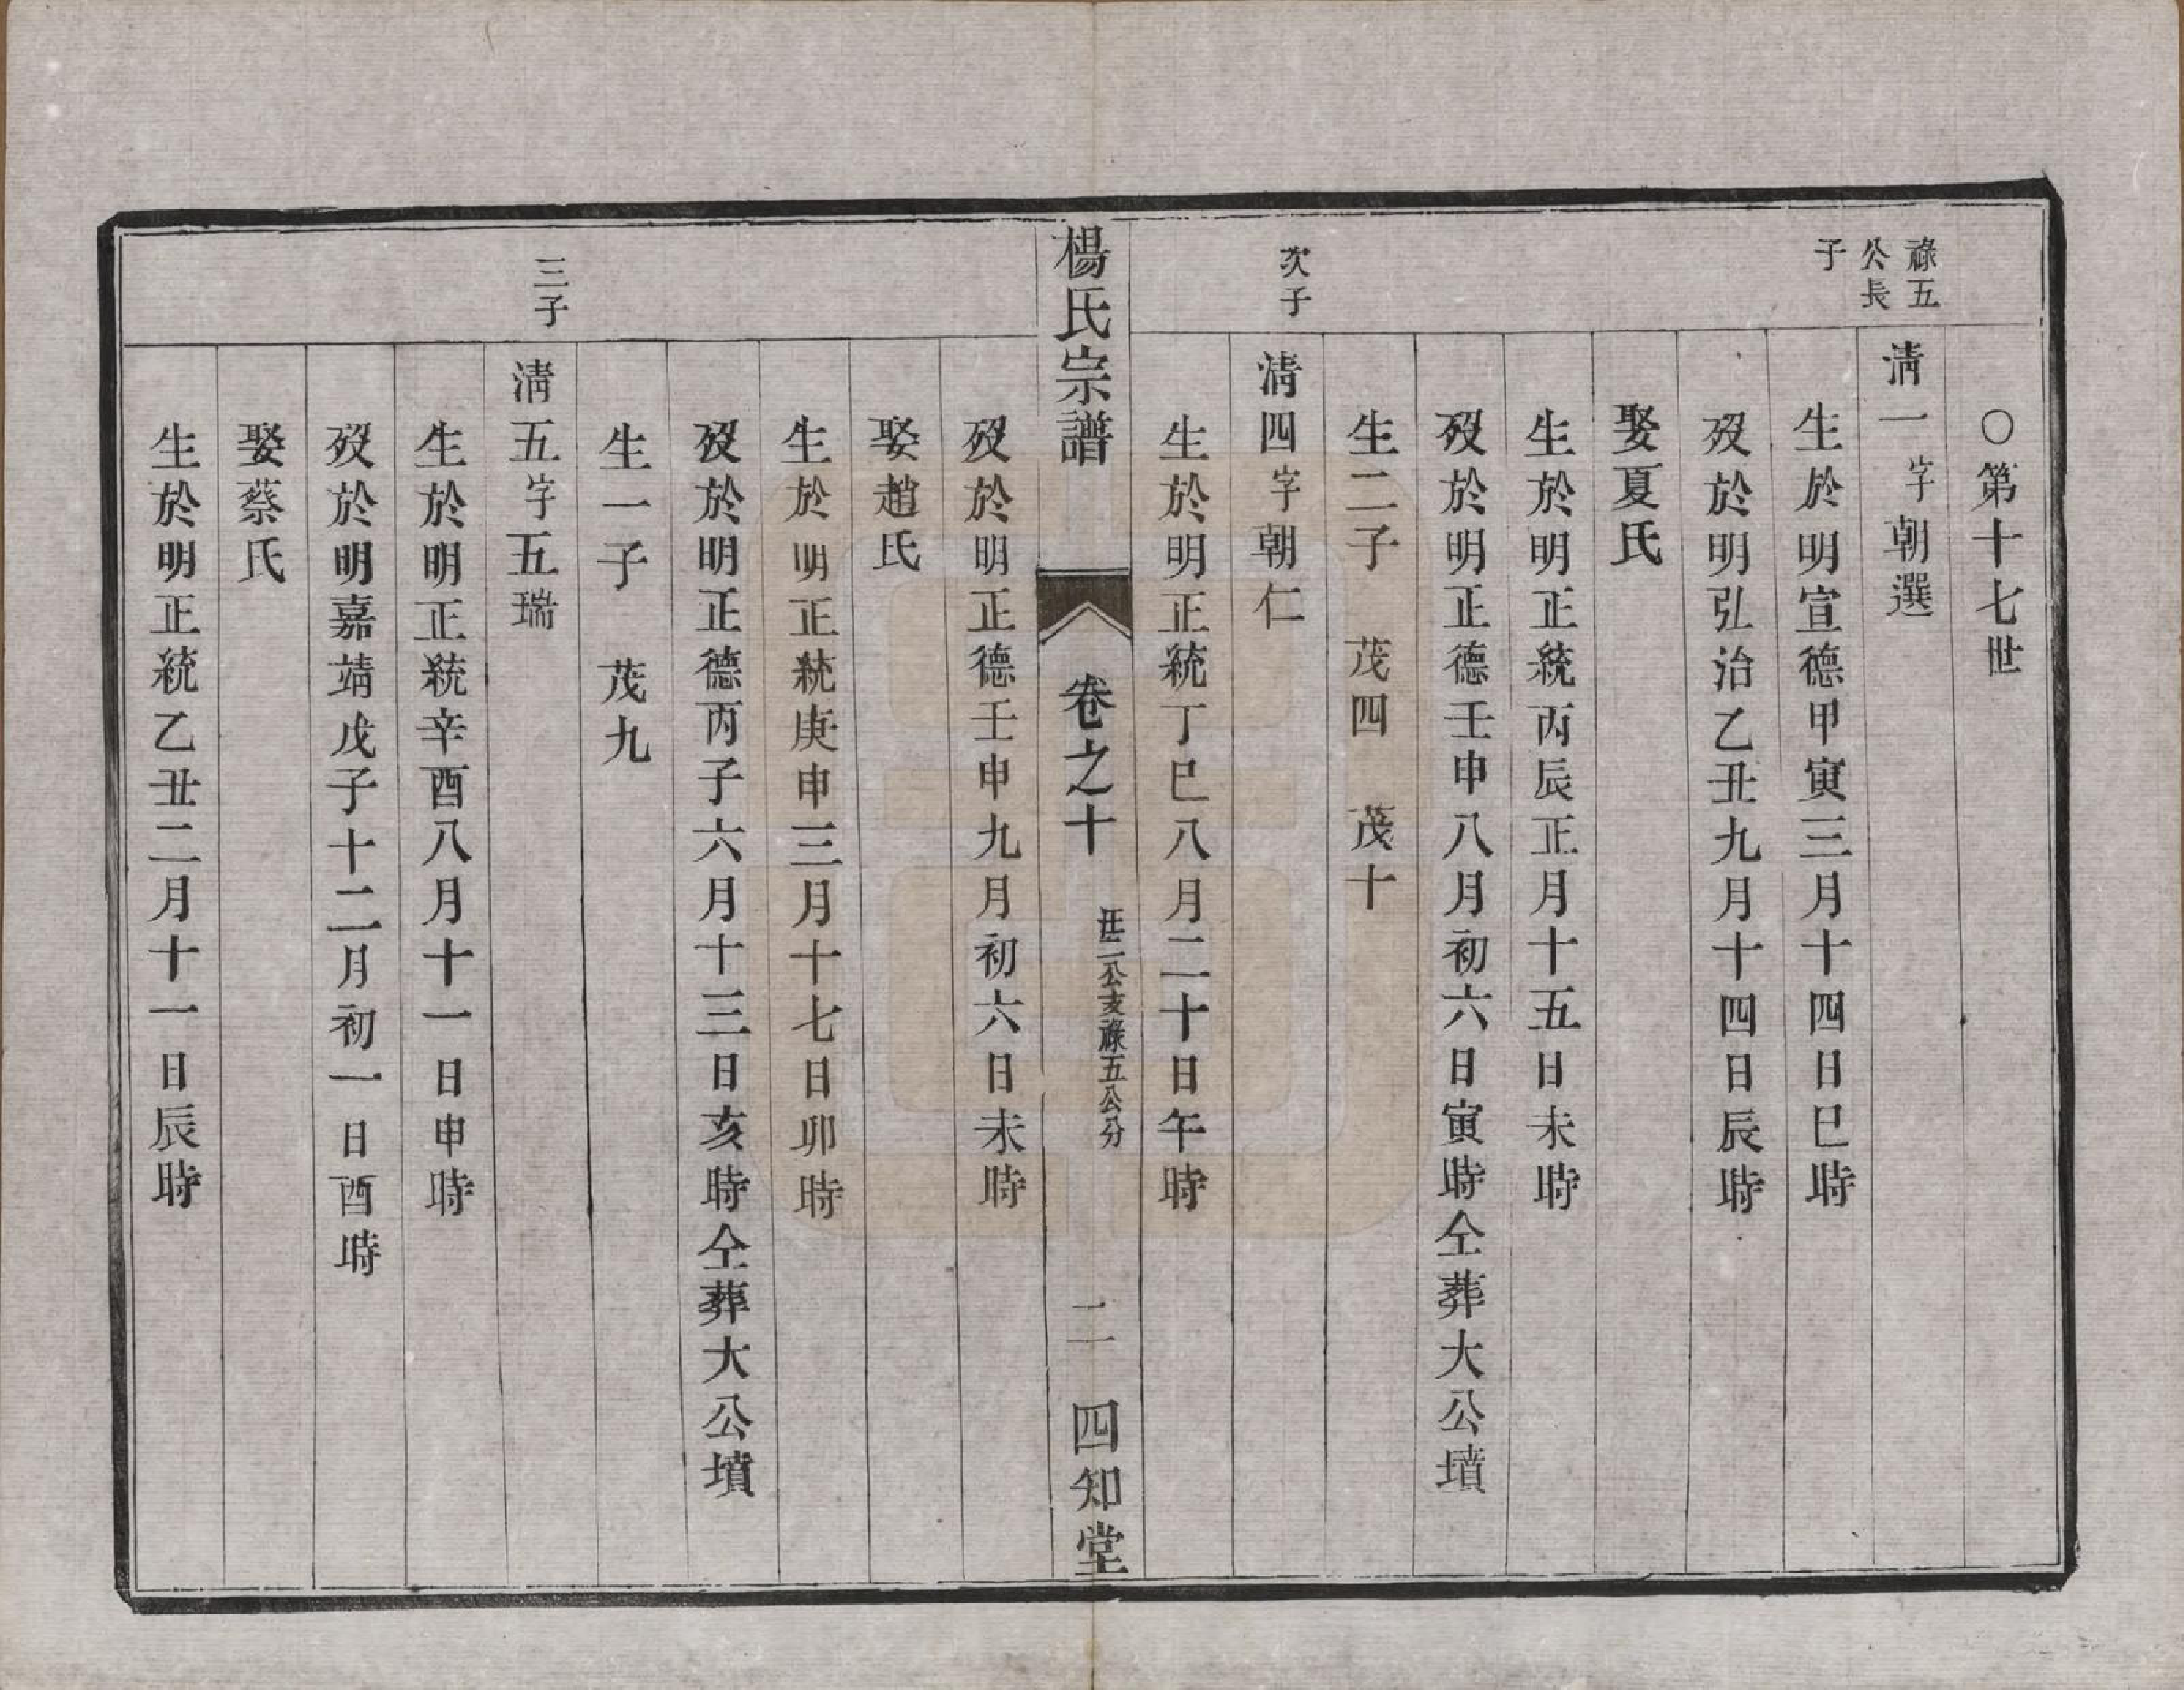 ○第十七世
祿五
公長
子
清一字朝選
生於明宣德甲寅三月十四日巳時
歿於明弘治乙丑九月十四日辰時
娶夏氏
生於明正統丙辰正月十五日未時
歿於明正德壬申八月初六日寅時仝葬大公墳
生二子 茂四 茂十
次子
清四字朝仁
生於明正統丁巳八月二十日午時
楊氏宗譜 卷之十 二公支祿五公分 二 四知堂
歿於明正德壬申九月初六日未時
娶趙氏
生於明正統庚申三月十七日卯時
歿於明正德丙子六月十三日亥時仝葬大公墳
生一子 茂九
三子
淸五字五瑞
生於明正統辛酉八月十一日申時
歿於明嘉靖戊子十二月初一日酉時
娶蔡氏
生於明正統乙丑二月十一日辰時